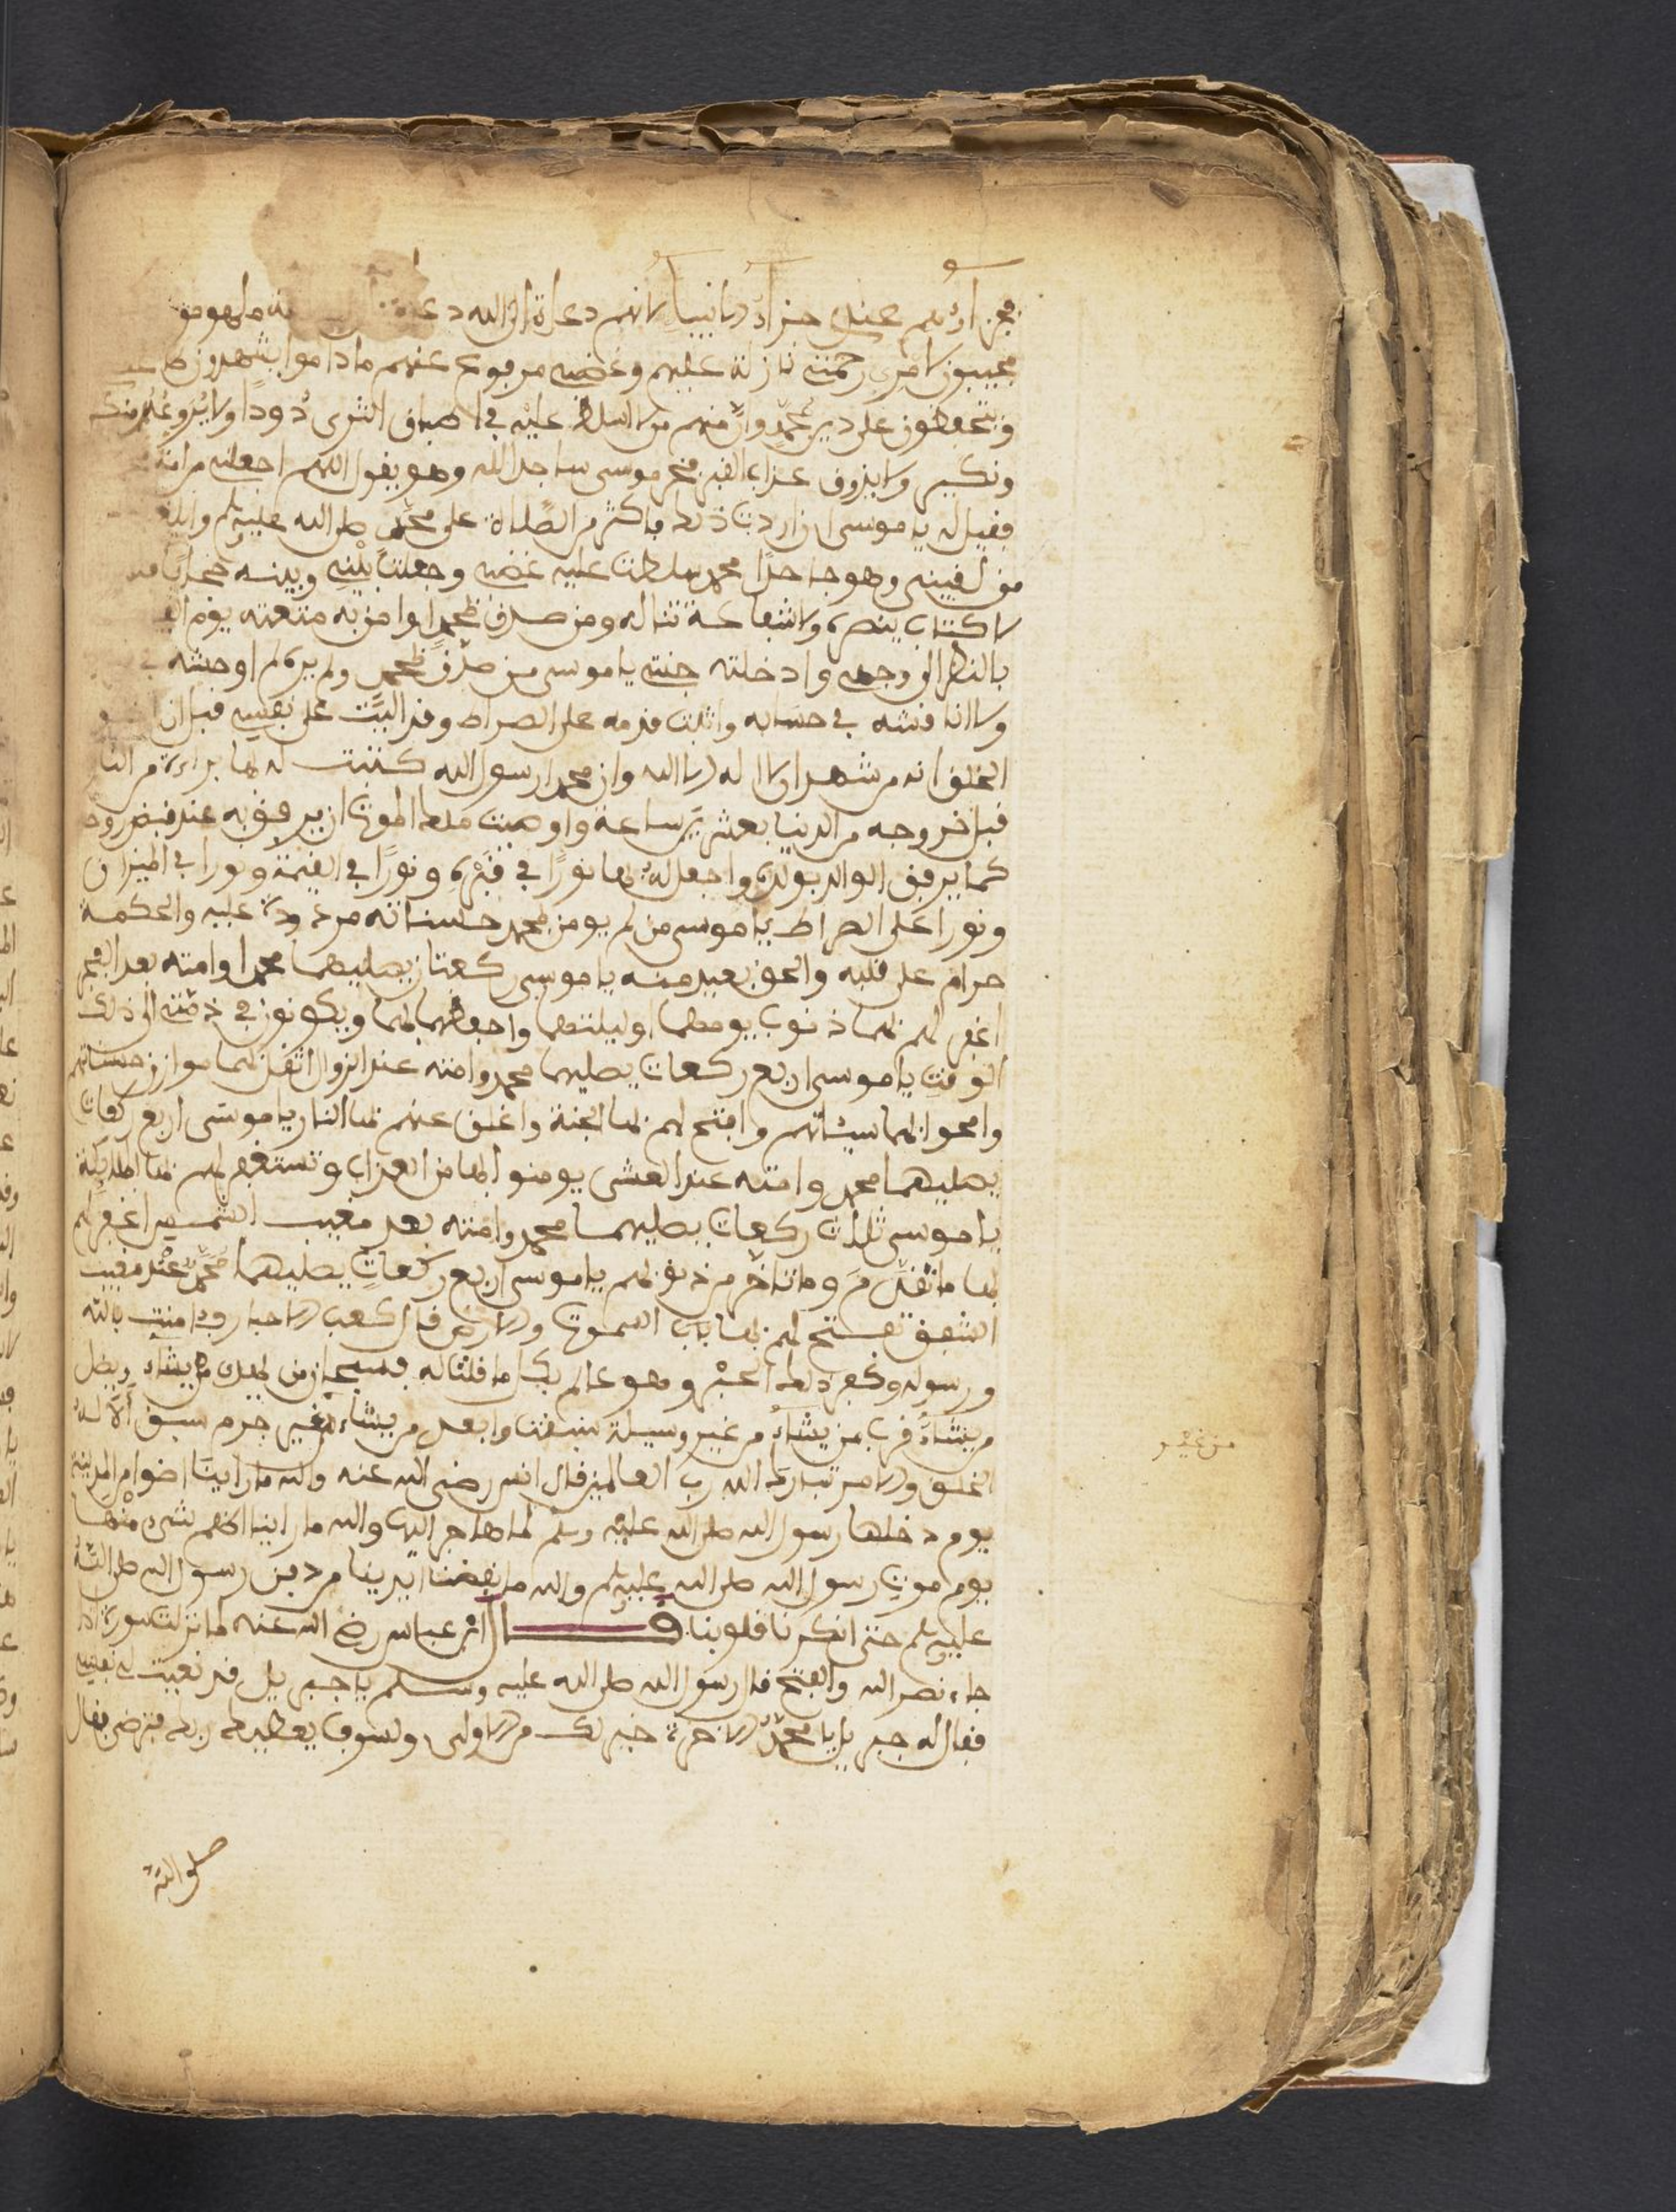 فجزاؤهم عندي جزاء الانبيا لانهم دعاة الى الله
مجيبون لامري رحمتي نازلة عليهم وغضبي مرفوع عنهم ما داموا يشهدون
ويحفظون على دين محمد وان منهم من لا اسلط عليه في اطباق الثرى دودا ولا يروعهم منكر
ونكير ولا يذوق عذاب القبر فخر موسى ساجدا لله وهو يقول اللهم اجعلني من امة
فقيل له يا موسى ان اردت ذلك فاكثر من الصلاة على محمد صلى الله عليه وسلم وانه
من لقيني وهو جاحدا محمد سلطت عليه غضبي وجعلت بيني وبينه حجابا
لا كتاب ينصره ولا شفاعة تناله ومن صدق بمحمد او امن به متعته يوم
بالنظر الى وجهي وادخلته جنتي يا موسى من صدق بمحمد ولم يره لم اوحشه في
ولا اناقشه في حسابه واثبت قدمه على الصراط وقد اليت على نفسي قبل ان
الخلق انه من شهد ان لا اله الا الله وان محمدا رسول الله كتبت له بها براءة من النا
قبل خروجه من الدنيا بعشرين ساعة واوصيت ملك الموت ان يرفق به عند قبض روحه
كما يرفق الوالد بولده واجعل له بها نورا في قبره ونورا في القيمة ونورا في الميزان
ونورا على الصراط يا موسى من لم يومن بمحمد حسناته مردودة عليه والحكمة
حرام على قلبه والحق بعيد منه يا موسى ركعتان يصليهما محمد وامته بعد الفجر
اغفر لهم بهما ذنوب يومهما وليلتهما واجعلهما لهما ويكونون في ذمتي الى ذلك
الوقت يا موسى اربع ركعات يصليها محمد وامته عند الزوال اثقل بها موازن حسناتهم
وامحوا بها سيئاتهم وافتح لهم بها الجنة واغلق عنهم بها النار يا موسى اربع ركعات
يصليهما محمد وامته عند العشي يومنوا بها من العذاب وتستغفر لهم بها الملايكة
يا موسى ثلاث ركعات يصليهما محمد وامته بعد مغيب الشمس اغفر لهم
بها ما تقدم وما تاخر من ذنوبهم يا موسى اربع ركعات يصليهما محمد عند مغيب
الشفق تفتح لهم بها باب السموات والارض قال كعب الاحبار وامنت بالله
ورسوله وكفر ذلك الحبر وهو عالم بكل ما قلت له فسبحان من يهدي من يشاء ويضل
من يشاء قرب من يشاء من غير وسيلة سبقت وابعد من يشاء من غير جرم سبق الا له
الخلق والامر تبارك الله رب العالمين قال انس رضي الله عنه والله ما راينا اضوا من المدينة
يوم دخلها رسول الله صلى الله عليه وسلم لما هاجر اليها والله ما راينا اظلم شيء منها
يوم موت رسول الله صلى الله عليه وسلم والله ما نفضنا ايدينا من دفن رسول الله صلى الله
عليه وسلم حتى انكرنا قلوبنا قال ابن عباس رضي الله عنه لما نزلت سورة اذا
جاء نصر الله والفتح قال رسول الله صلى الله عليه وسلم يا جبريل قد نعيت لي نفسي
فقال له جبريل يا محمد الاخرة خير لك من الاولى ولسوف يعطيك ربك فترضى فقال
من غير
صلى الله